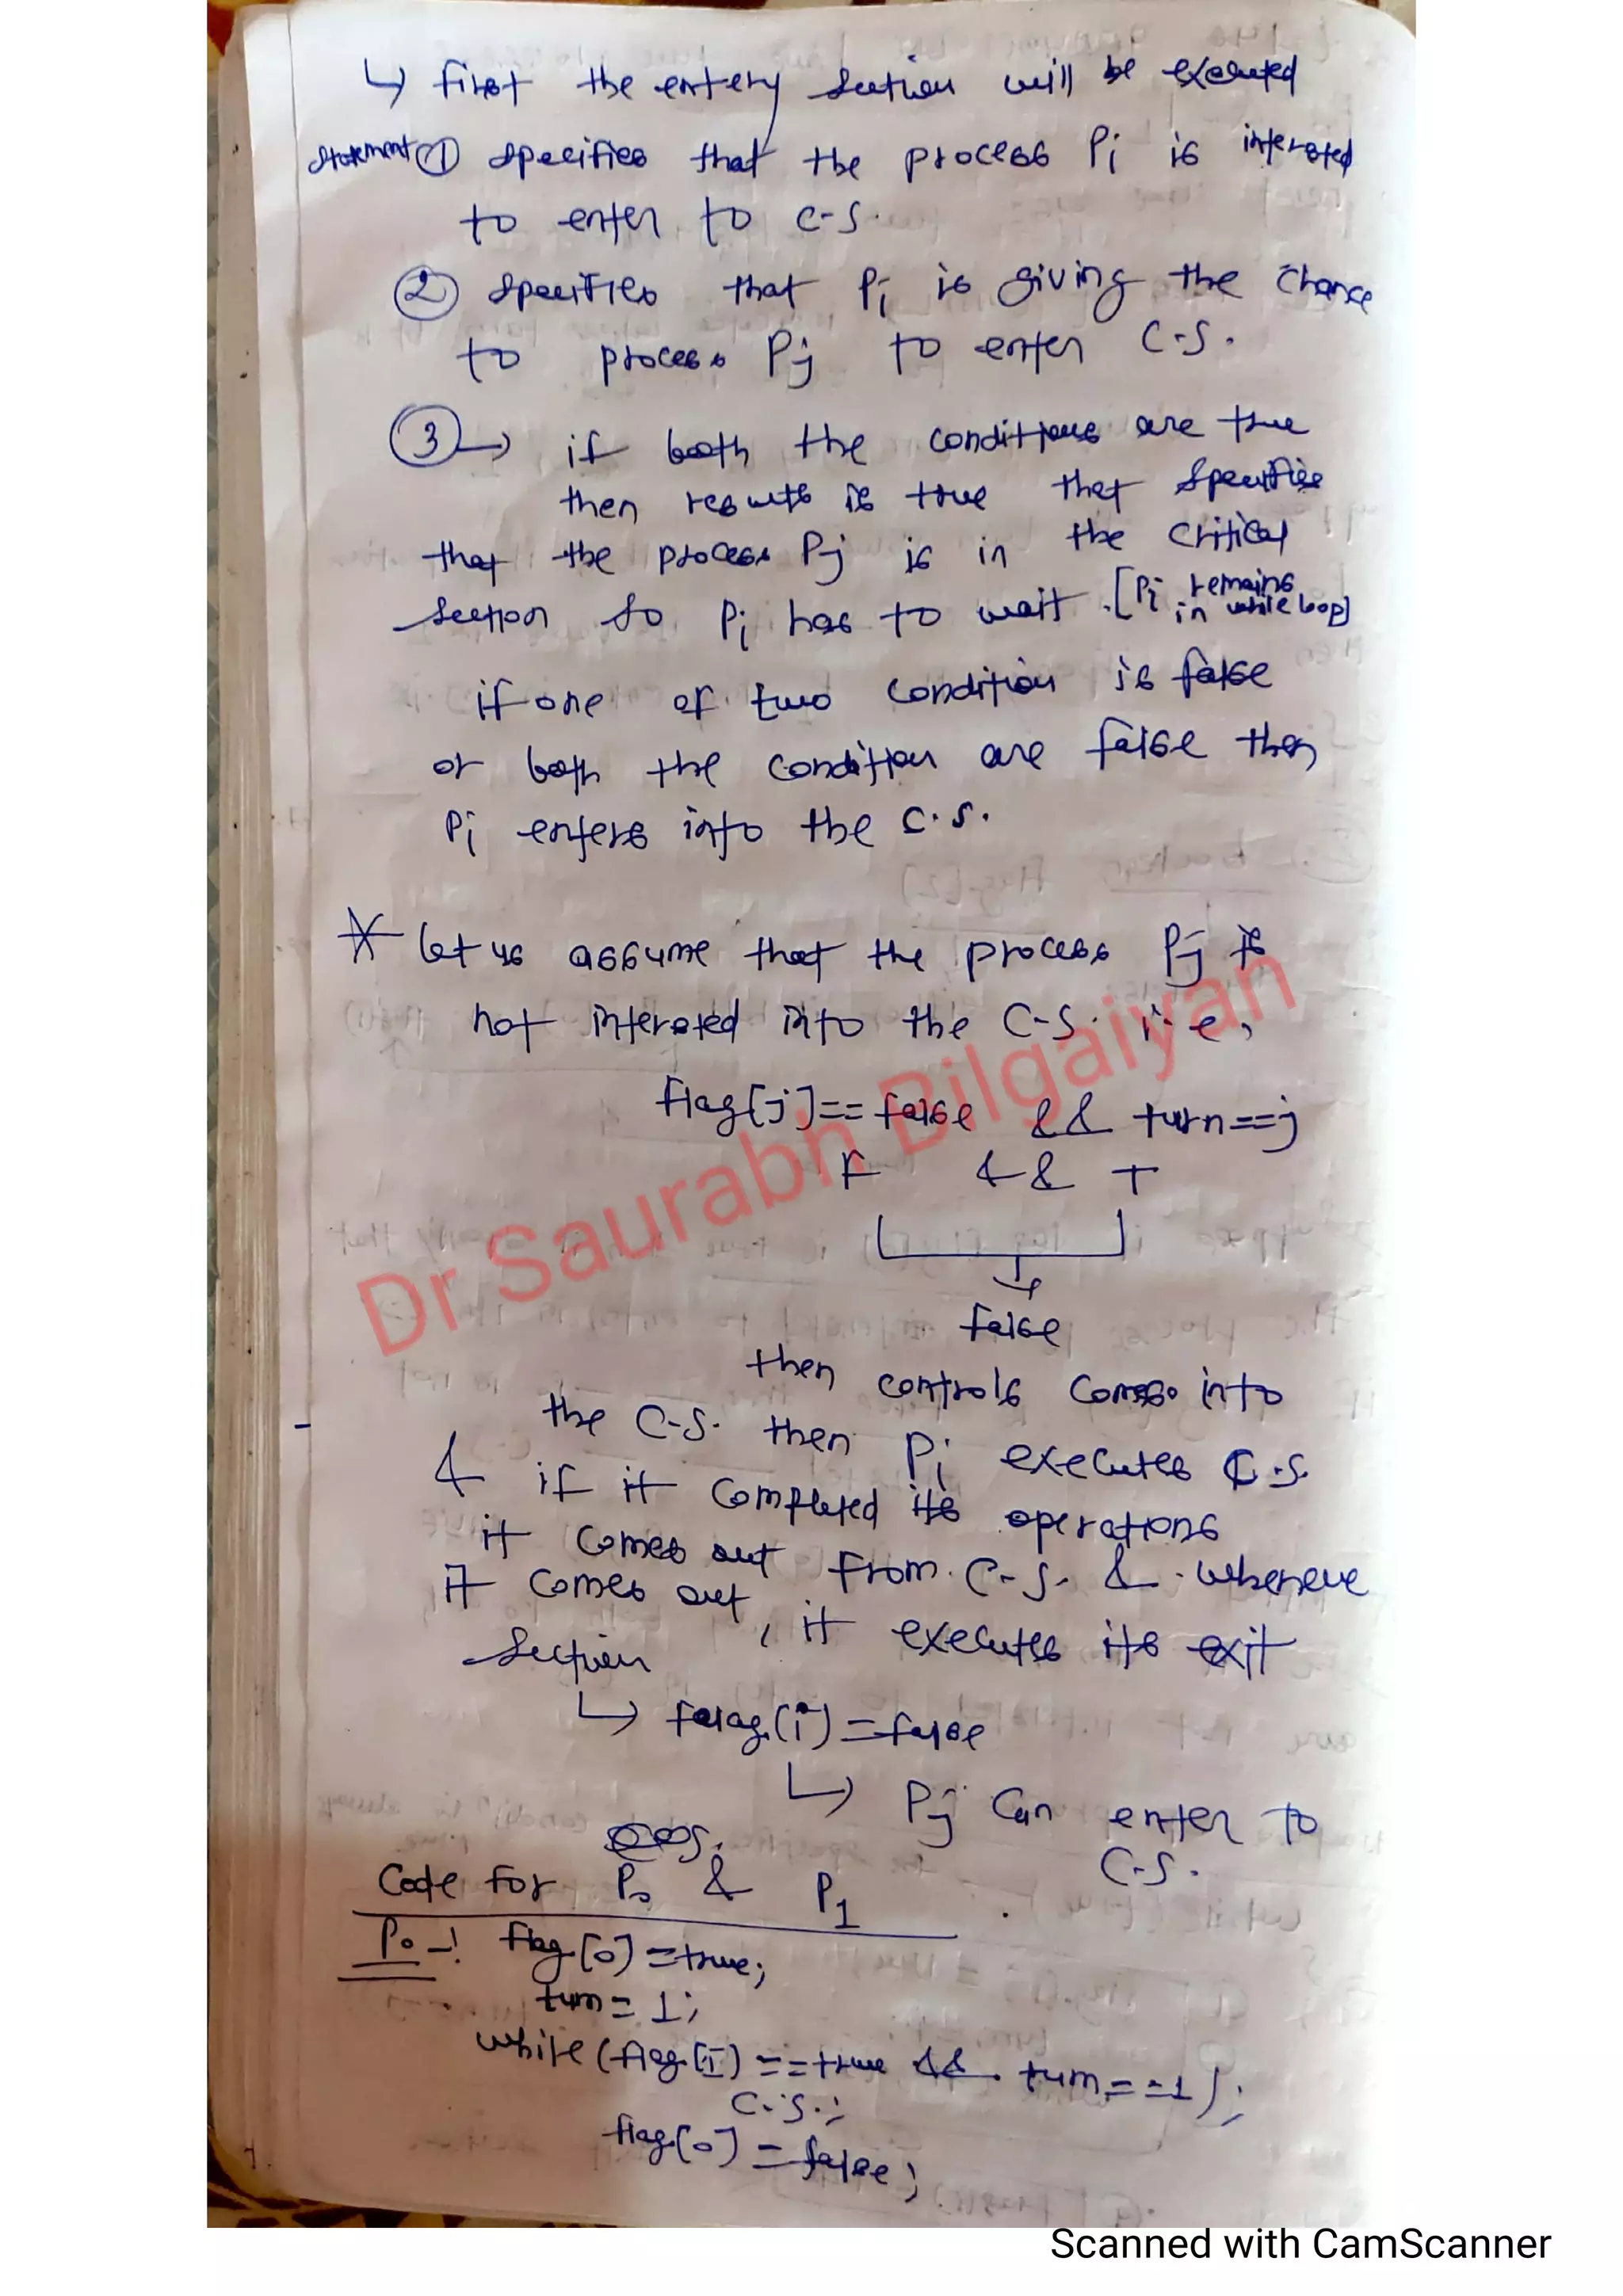 ↳ first the entery section will be executed
statement ① specifies that the process Pi is interested
to enter to C-S.
② specifies that Pi is giving the chance
to process Pj to enter C-S.
③ → if both the conditions are true
then results is true that specifies
that the process Pj is in the critical
section so Pi has to wait. [Pi remains
in while loop]
if one of two condition is false
or both the condition are false then
Pi enters into the C.S.
* let us assume that the process Pj is
not interested into the C-S. i.e,
flag[j]==false && turn==j
F && T
false
then controls comes into
the C-S. then Pi executes C.S.
& if it completed its operations
it comes out from C-S. & wheneve
it comes out, it executes its exit
section
↳ falag(i)=false
↳ Pj can enter to
C-S.
Code for P0 & P1
P0 -: flag[0]=true;
turn = 1;
while (flag[1]==true && turn==1);
C.S.;
flag[0]=false;
Dr Saurabh Bilgaiyan
Scanned with CamScanner